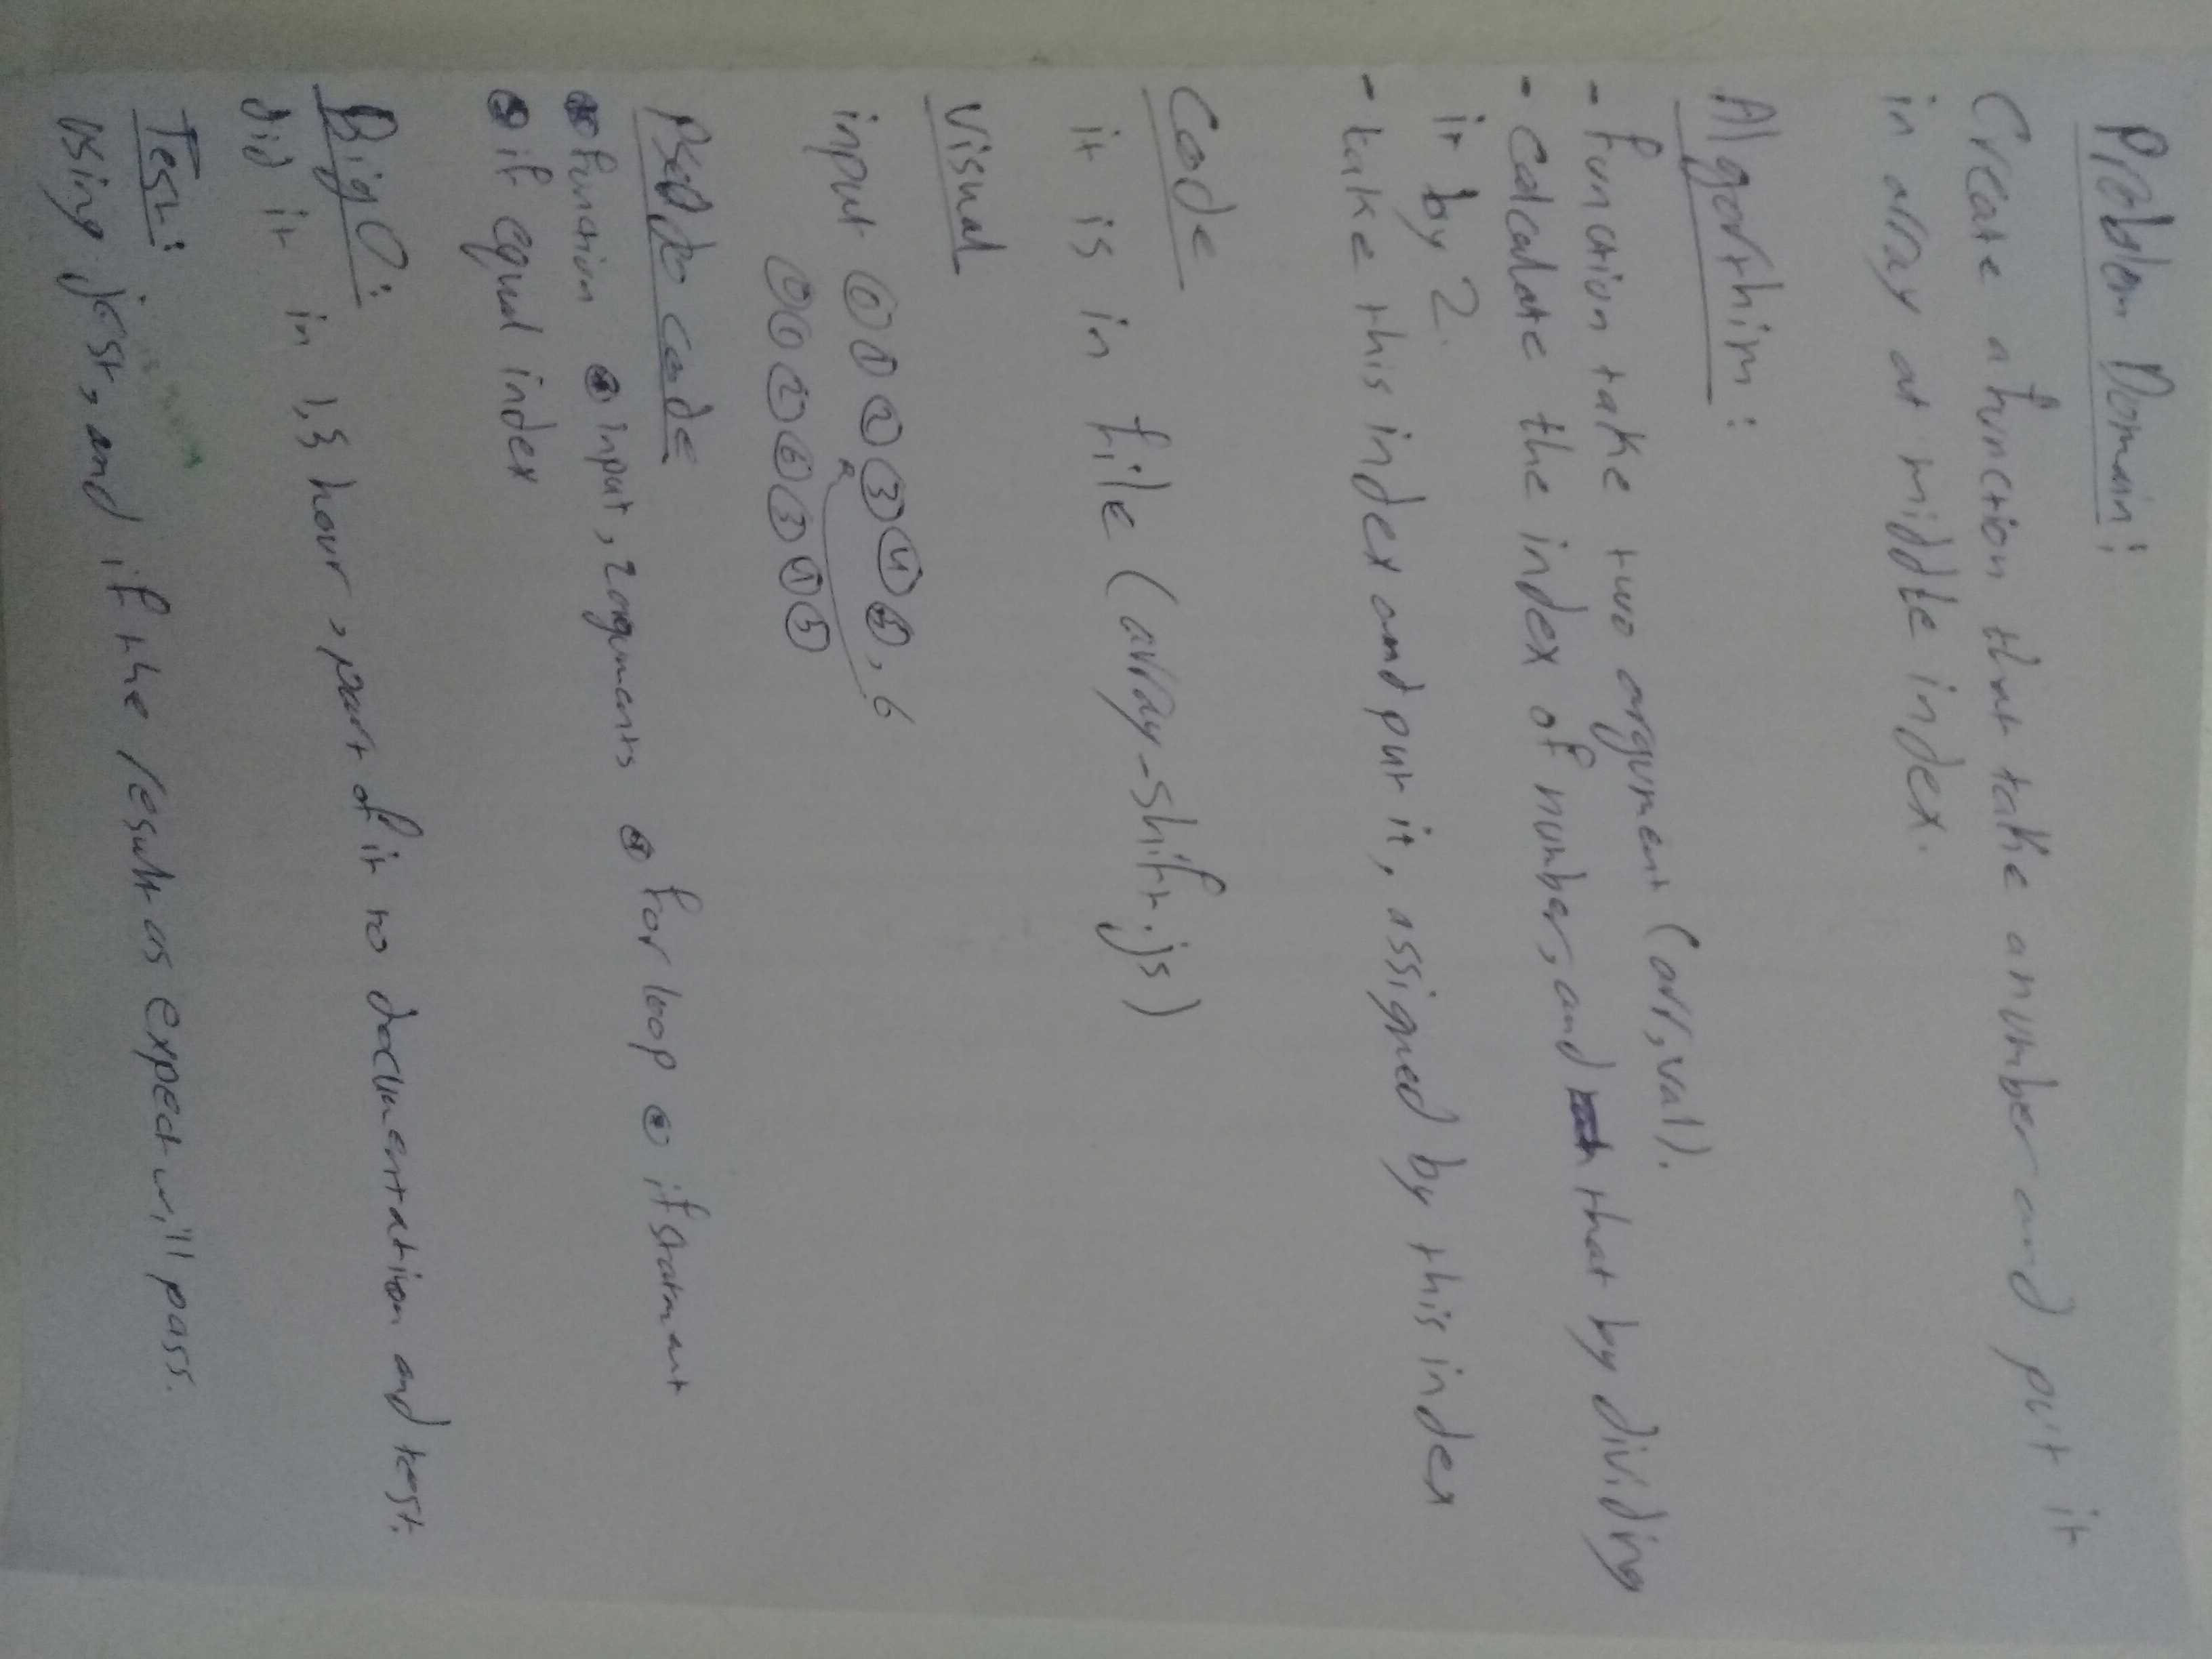 Problem Domain:
Create a function that take a number and put it
in array at middle index.
Algorthim:
- function take two argument (arr, val).
- calculate the index of number, and that by dividing
it by 2.
- take this index and put it, assigned by this index
Code
it is in file (array-shift.js)
visual
input 0 1 2 3 4 5, 6
0 1 2 6 3 4 5
Psedo code
function input, 2 arguments for loop if statment
if equal index
Big O:
did it in 1,3 hour, part of it to documentation and test.
Test:
using jest, and if the result as expect will pass.